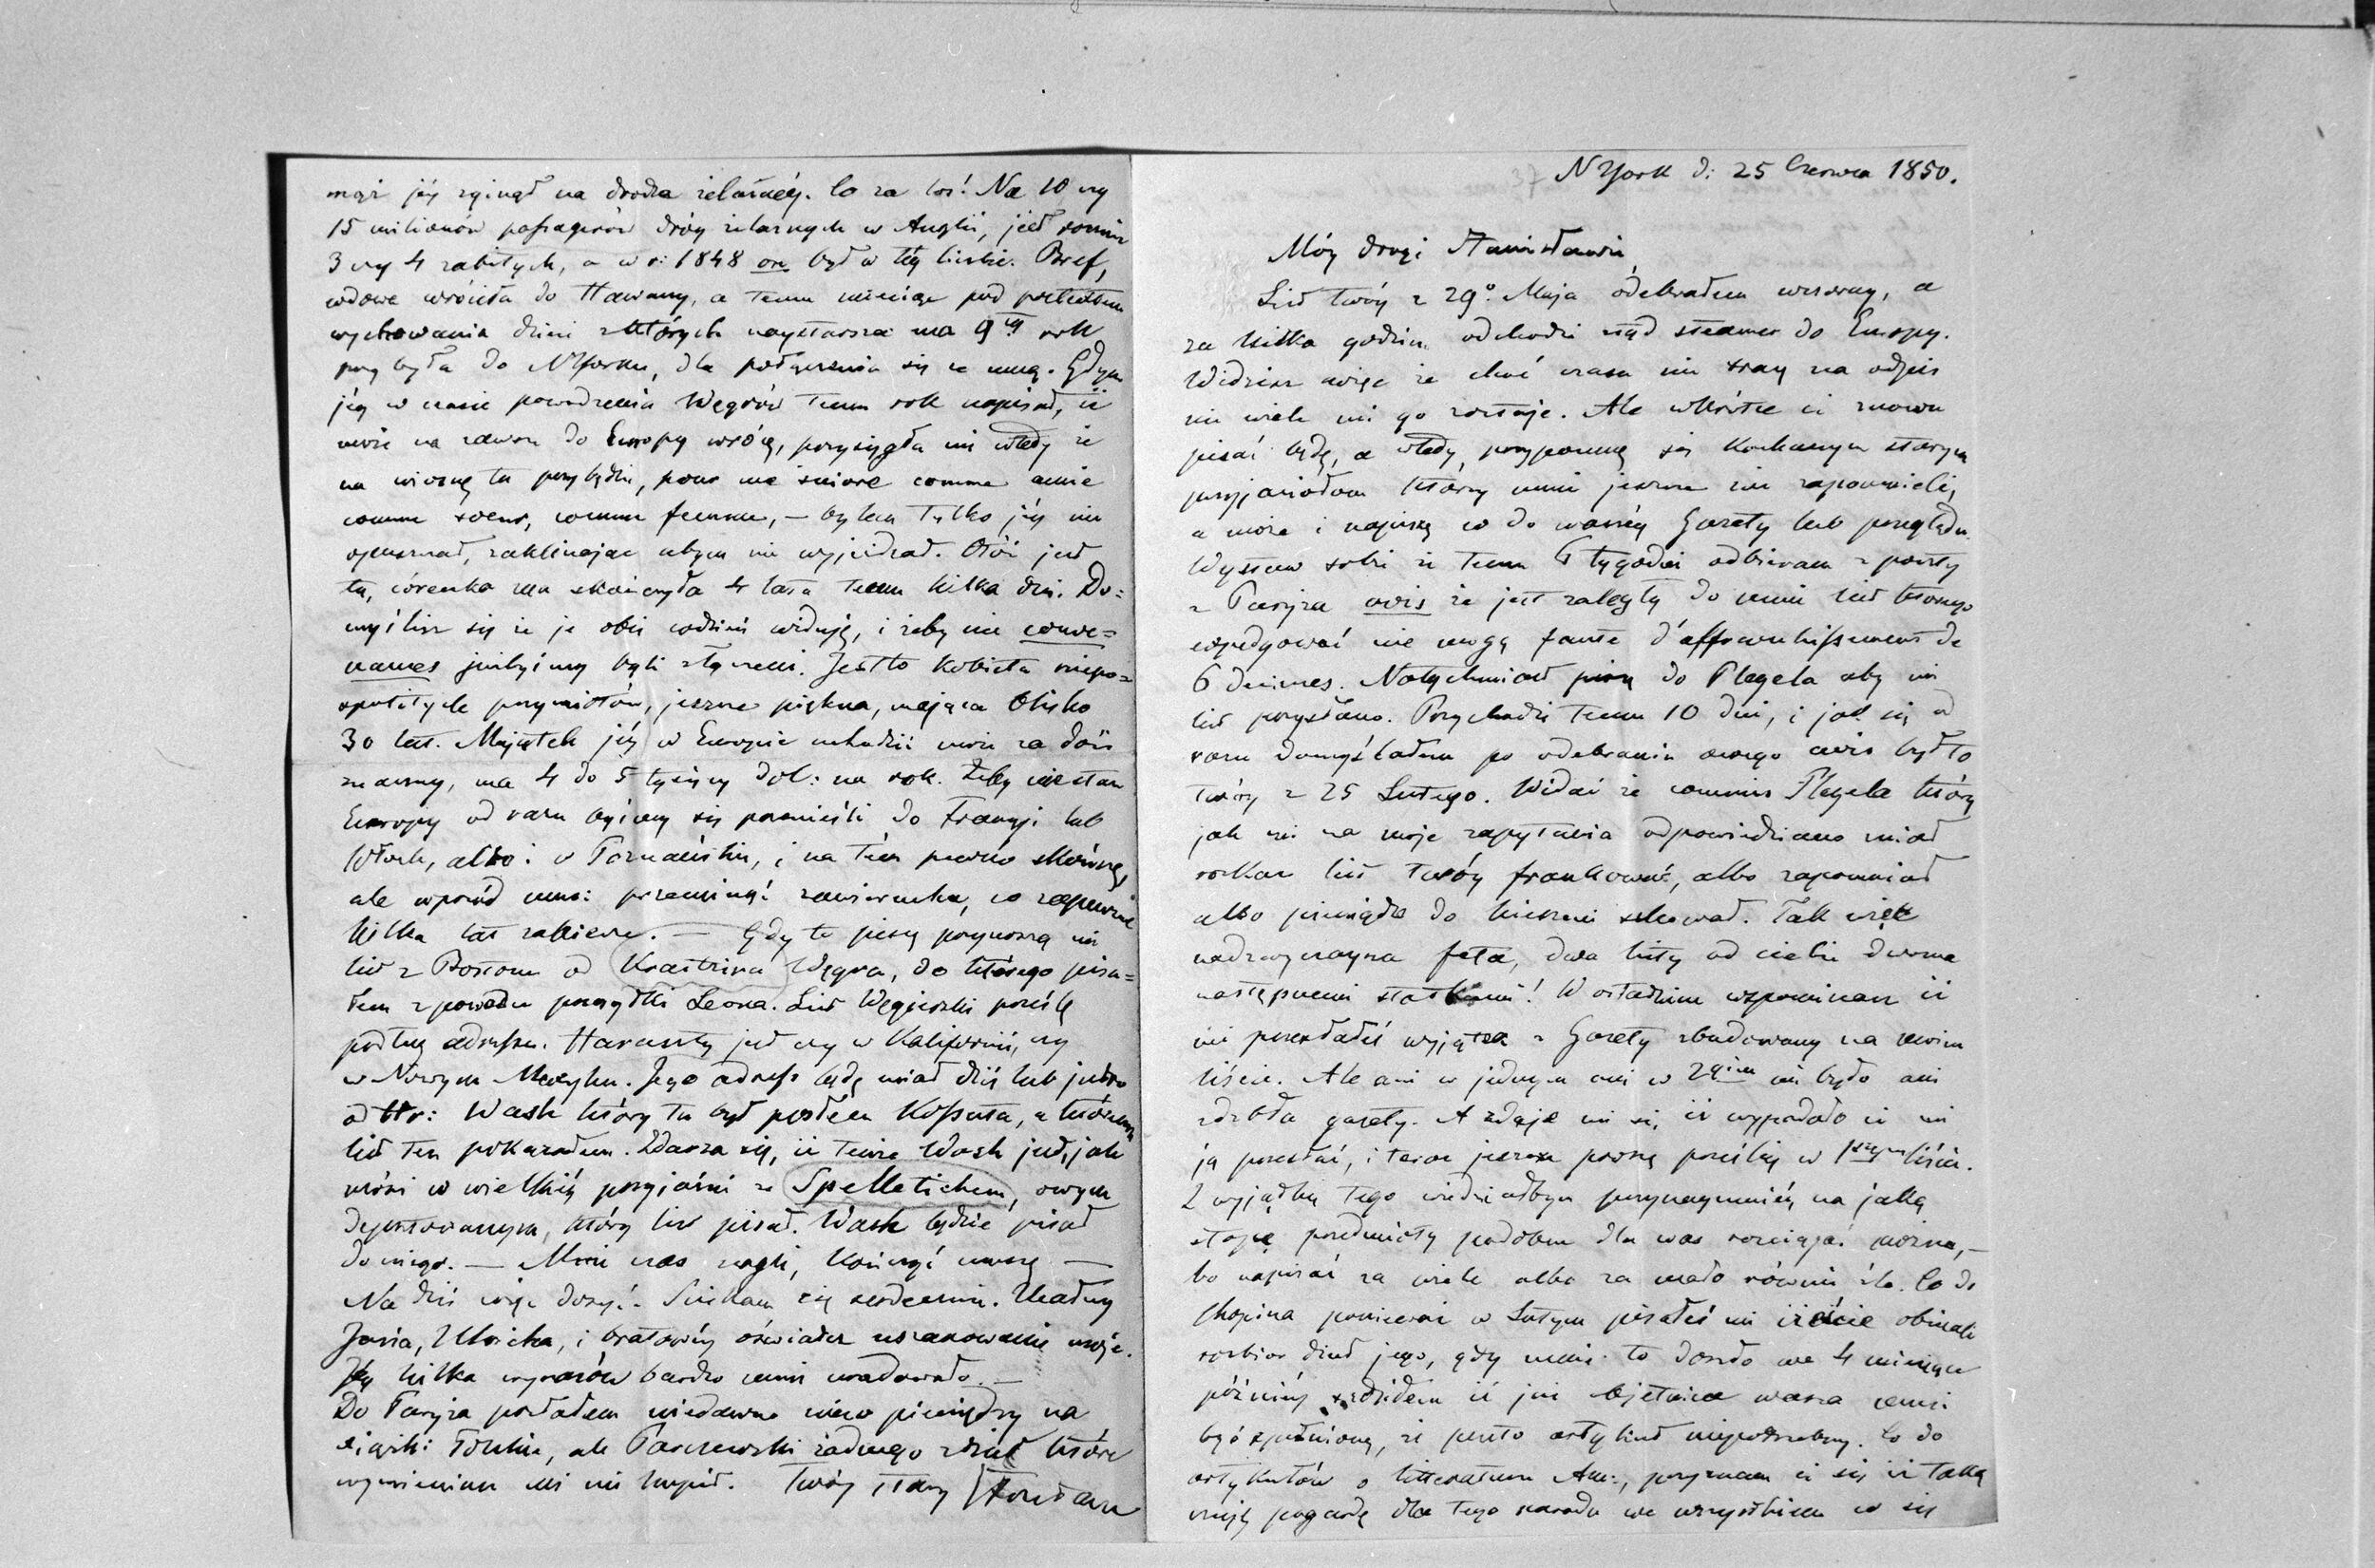 mąż jéj zginął na drodze żelaznéj. Co za los! Na 10 czy
15 milionów passażerów dróg żelaznych w Anglii, jest rocznie
3 czy 4 zabitych, a w r: 1848 on był w téj liczbie. Bref,
wdowa wróciła do Hawany, a temu miesiąc pod pretextem
wychowania dzieci z których naystarsza ma 9ty rok
przybyła do NYorku, dla połączenia się ze mną. Gdym
jéj w czasie powodzenia Węgrów temu rok napisał, iż
może na zawsze do Europy wrócę, przysięgła mi wtedy że
na wiosnę tu przybędzie, pour me suivre comme amie
comme soeur, comme femme, — bylem tylko jéj nie
opuszczał, zaklinając abym nie wyjeżdzał. Otóż jest
tu, córeczka ma skończyła 4 lata temu kilka dni. Do=
myślisz się że je obie codzień widuję, i żeby nie conve=
nances jużbyśmy byli złączeni. Jestto kobieta niepo=
spolitych przymiotów, jeszcze piękna, mająca blisko
30 lat. Majątek jéj w Europie uchodzić może za dość
znaczny, ma 4 do 5 tysięcy dol: na rok. Żeby nie stan
Europy od razu byśmy się przenieśli do Francyi lub
Włoch, albo i w Poznańskie, i na tém pewno skończę,
ale wprzód musi przeminąć zawierucha, co zapewne
kilka lat zabierze. — Gdy to piszę przynoszą mi
list z Bostonu od Kratzina Węgra, do którego pisa=
łem z powodu przesyłki Leona. List Węgierski prześlę
podług adressu. Haraszty jest czy w Kalifornii, czy
w Nowym Mexyku. Jego adress będę miał dziś lub jutro
od Hr: Wash który tu był posłem Kossuta, a któremu
list ten pokazałem. Zdarza się, iż tenże Wash jest, jak
mówi w wielkiéj przyjaźni ze Spelletichem, owym
deputowanym, który list pisał. Wash będzie pisał
do niego. — Mnie czas nagli, kończyć muszę —
Na dziś więc dosyć. Ściskam cię serdecznie. Ucałuj
Jasia, Ulricha, i bratowéj oświadcz uszanowanie moje.
Jéj kilka wyrazów bardzo mnie uradowało. —
Do Paryża posłałem niedawno nieco pieniędzy na
książki Polskie, ale Paszewski żadnego z dzieł które
wymieniasz mi nie kupił. Twój stary JFontana
NYork d: 25 Czerwca 1850.
Móy drogi Stanisławie
List twóy z 29o Maja odebrałem wczoray, a
za kilka godzin odchodzi ztąd steamer do Europy.
Widzisz więc że choć czasu nie tracę na odpis
nie wiele mi go zostaje. Ale wkrótce ci znowu
pisać będę, a wtedy przypomnę się kochanym starym
przyjaciołom którzy mnie jeszcze nie zapomnieli,
a może i napiszę co do waszéj Gazety lub przeglądu.
Wystaw sobie że temu 6 tygodni odbieram z poczty
z Paryża avis że jest zaległy do mnie list którego
expedyować nie mogą faute d'affranchissement de
6 decimes. Natychmiast piszę do Pleyela aby mi
list przysłano. Przychodzi temu 10 dni, i jak się od
razu domyślałem po odebraniu owego avis był to
twóy z 25 Lutego. Widać że commis Pleyela który
jak mi na moje zapytania odpowiedziano miał
rozkaz list twóy frankować, albo zapomniał
albo pieniądze do kieszeni schował. Tak więc
nadzwyczayna feta, dwa listy od ciebie dwoma
następnemi statkami! W ostatnim wspominasz iż
mi przesłałeś wyjątek z Gazety zbudowany na moim
liście. Ale ani w jednym ani w 2gim nie było ani
zdzbła gazety. A zdaje mi się iż wypadało ci mi
ją przesłać, i teraz jeszcze proszę prześlij w 1szym liście.
Z wyjątku tego wiedziałbym przynaymniéj na jaką
stopę przedmioty podobne dla was rozciągać można, —
bo napisać za wiele albo za mało równie źle. Co do
Chopina ponieważ w Lutym pisałeś mi iżeście obiecali
rozbior dzieł jego, gdy mnie to doszło we 4 miesiące
późniéj sądziłem iż już obietnica wasza musi
być spełnioną, że przeto artykuł niepotrzebny. Co do
artykułów o litteraturze Am:, przyznam ci się iż taką
czuję pogardę dla tego narodu we wszystkiem co się